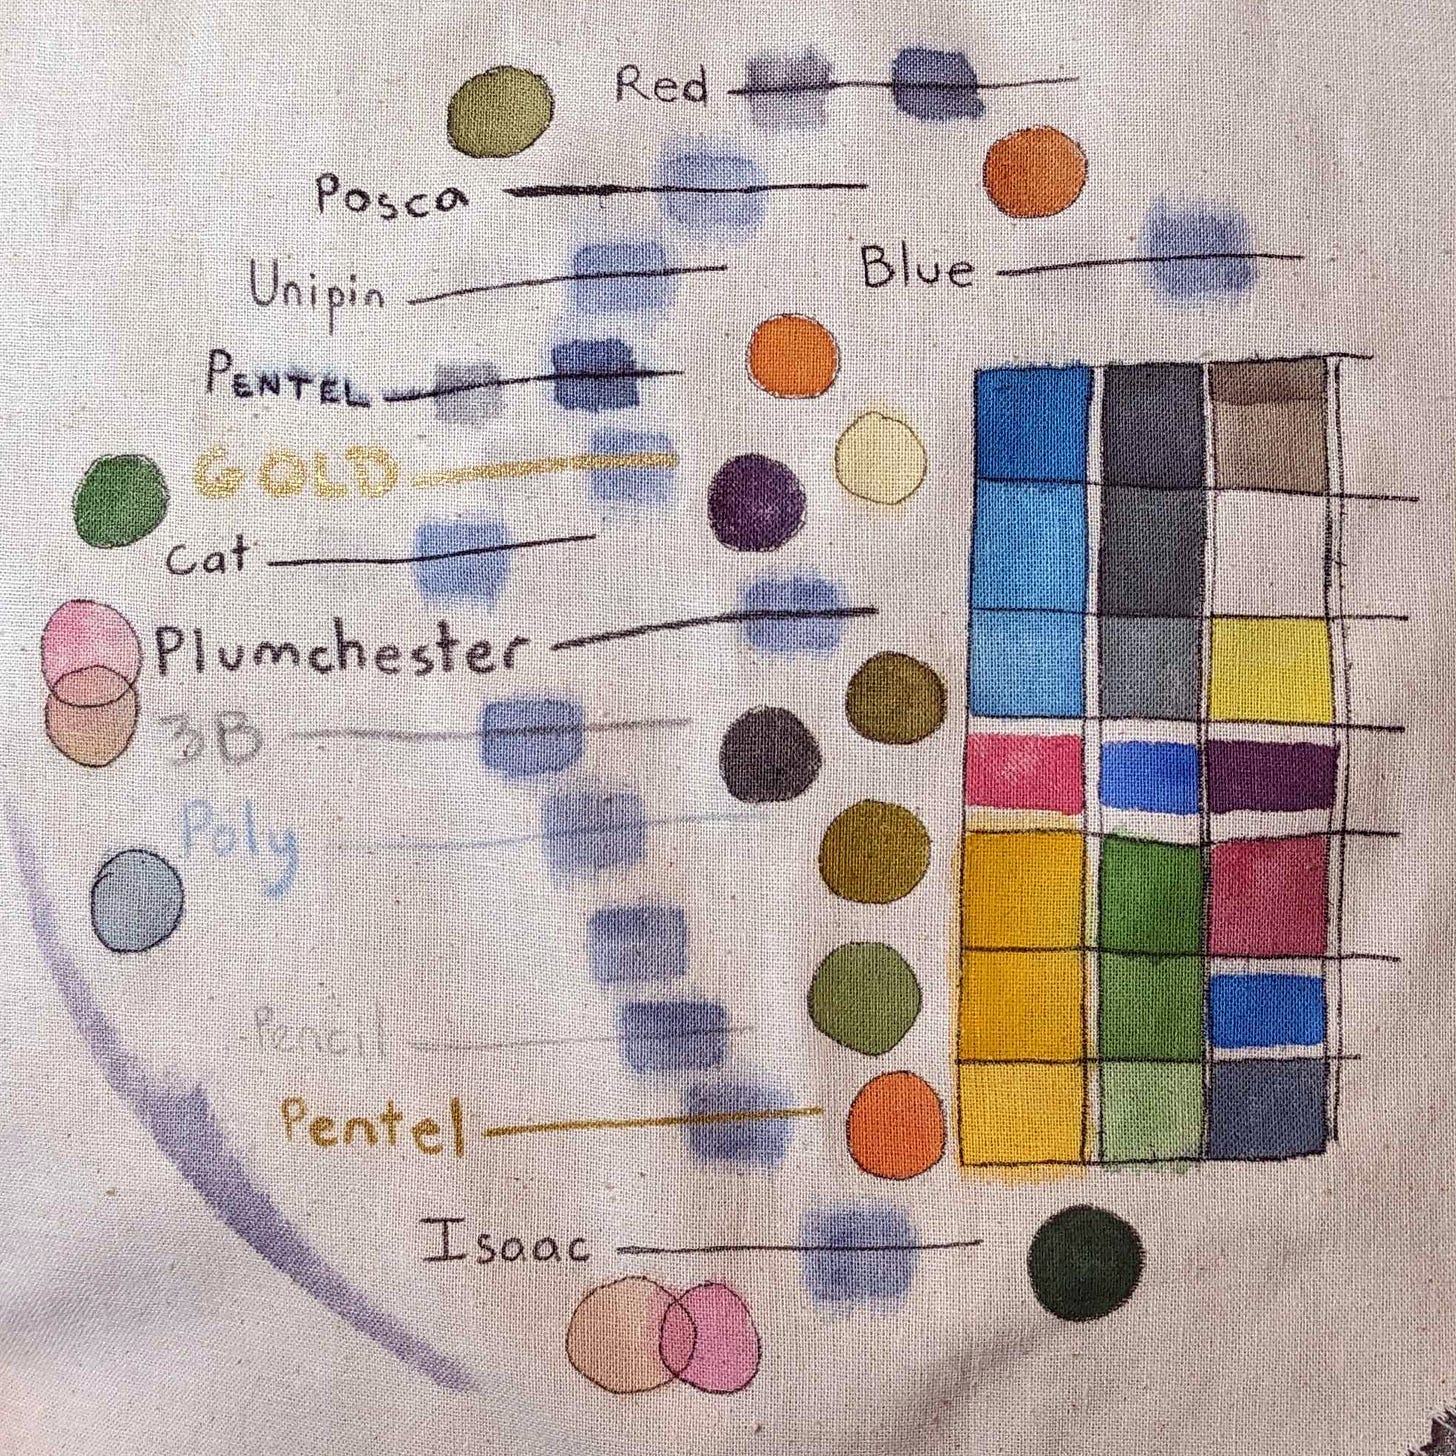 Red
Posca
Unipin
Blue
PENTEL
GOLD
Cat
Plumchester
3B
Poly
Pencil
Pentel
Isaac